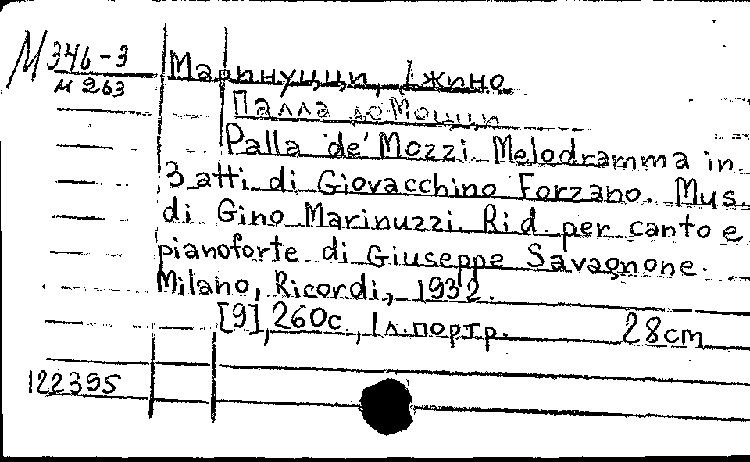 М 346-3
М 263
Маринуцци, Джино
Палла де Моцци
Palla de' Mozzi. Melodramma in
3 atti di Giovacchino Forzano. Mus.
di Gino Marinuzzi. Rid. per canto e
pianoforte di Giuseppe Savagnone.
Milano, Ricordi, 1932.
[9], 260с., 1 л.портр. 28cm
122395